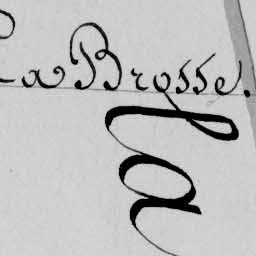 La Brosse.
la